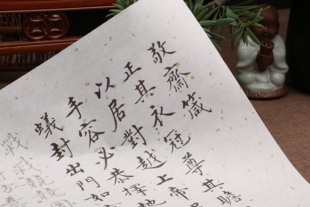 敬齋箴
正其衣冠尊其瞻
以居對越上帝
手容必恭擇地
蟻封出門如